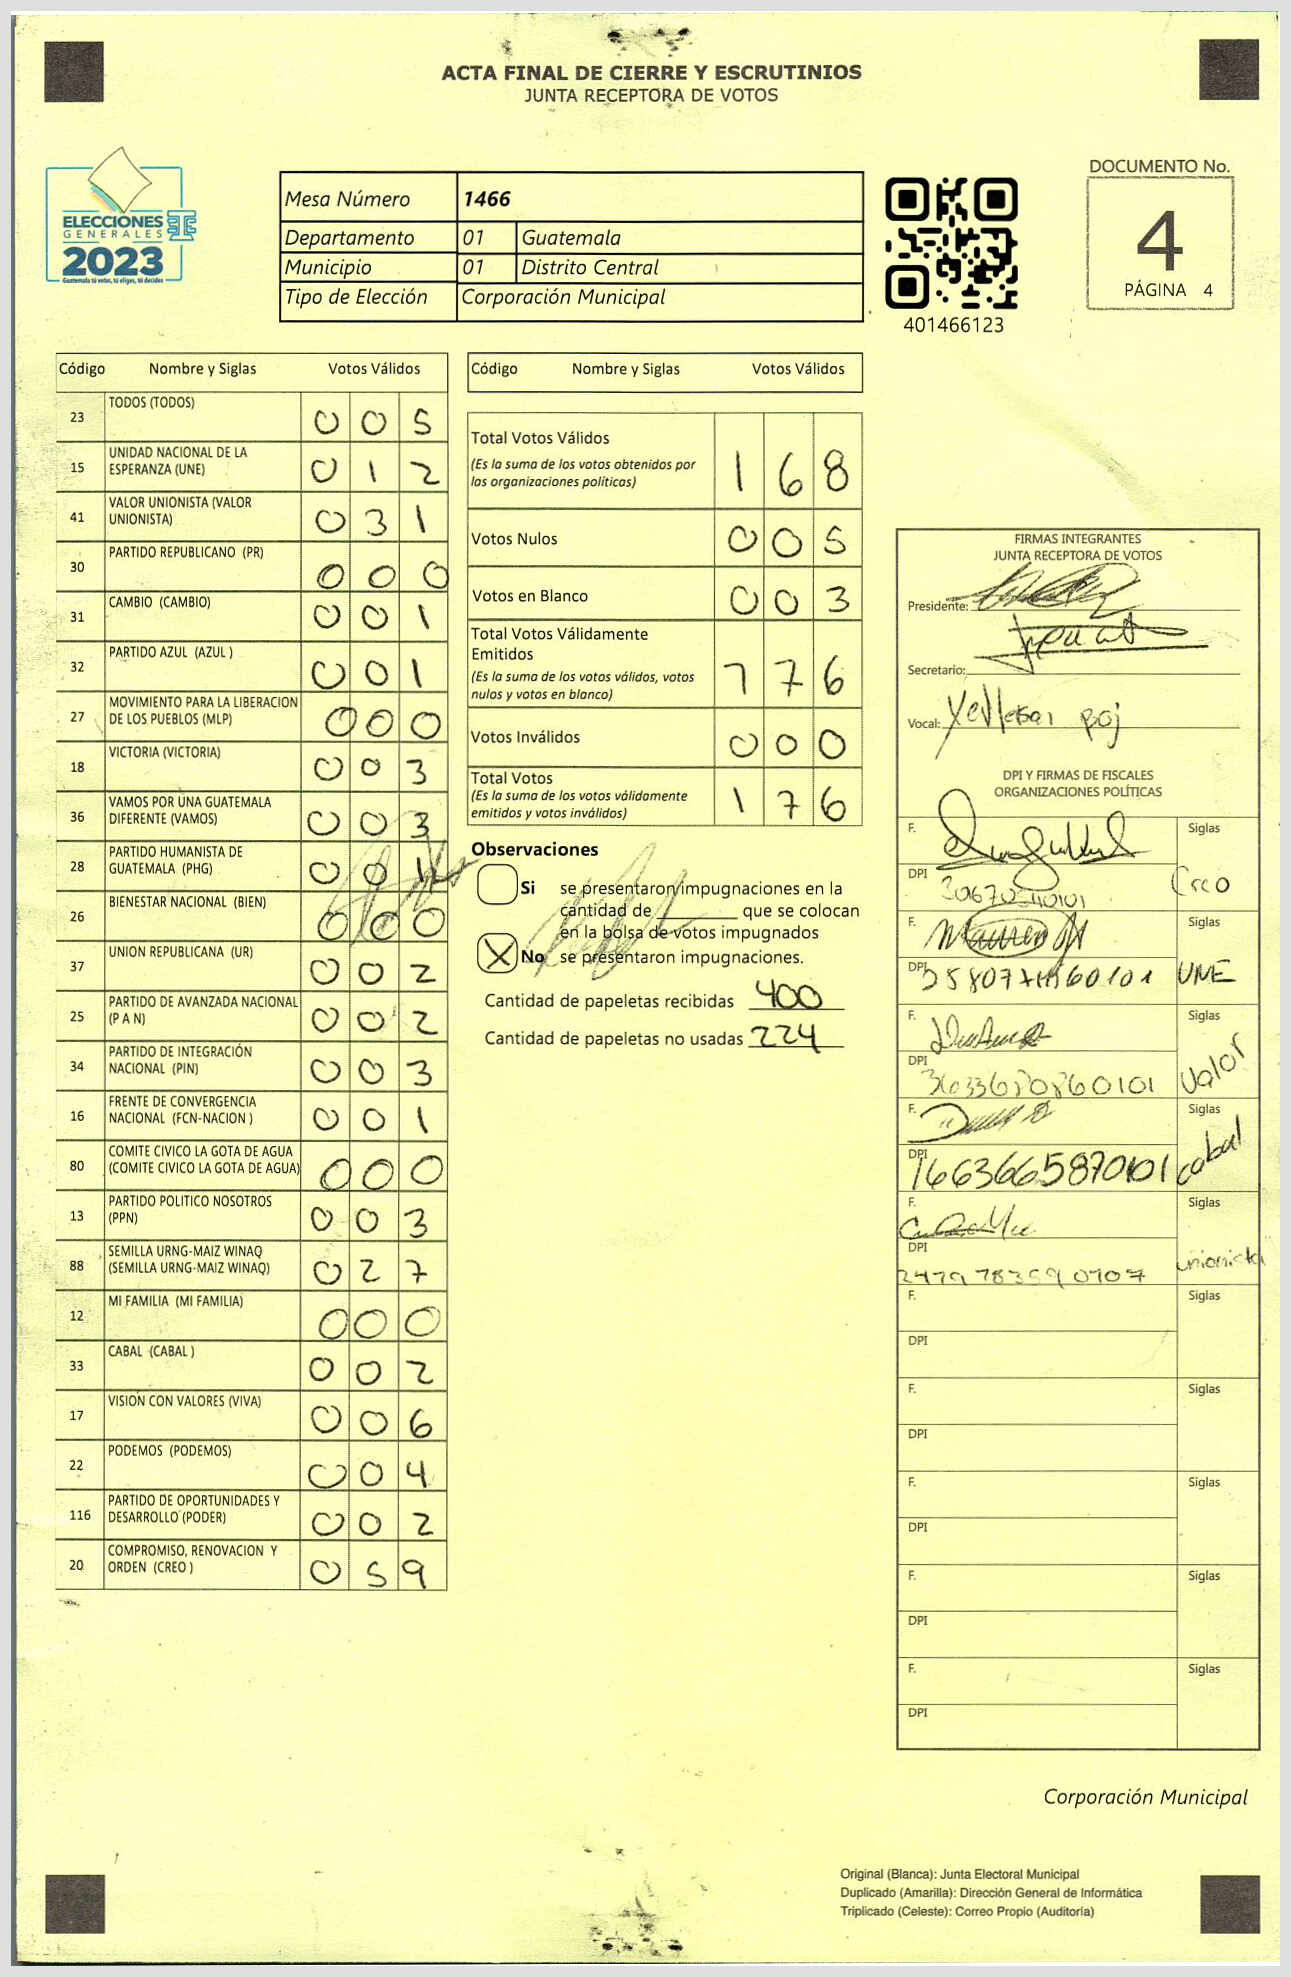 ACTA FINAL DE CIERRE Y ESCRUTINIOS
JUNTA RECEPTORA DE VOTOS
ELECCIONES
GENERALES
2023
Guatemala tú votas, tú eliges, tú decides
Mesa Número 1466
Departamento 01 Guatemala
Municipio 01 Distrito Central
Tipo de Elección Corporación Municipal
401466123
DOCUMENTO No.
4
PÁGINA 4
Código Nombre y Siglas Votos Válidos
23 TODOS (TODOS) 0 0 5
15 UNIDAD NACIONAL DE LA ESPERANZA (UNE) 0 1 2
41 VALOR UNIONISTA (VALOR UNIONISTA) 0 3 1
30 PARTIDO REPUBLICANO (PR) 0 0 0
31 CAMBIO (CAMBIO) 0 0 1
32 PARTIDO AZUL (AZUL ) 0 0 1
27 MOVIMIENTO PARA LA LIBERACION DE LOS PUEBLOS (MLP) 0 0 0
18 VICTORIA (VICTORIA) 0 0 3
36 VAMOS POR UNA GUATEMALA DIFERENTE (VAMOS) 0 0 3
28 PARTIDO HUMANISTA DE GUATEMALA (PHG) 0 0 1
26 BIENESTAR NACIONAL (BIEN) 0 0 0
37 UNION REPUBLICANA (UR) 0 0 2
25 PARTIDO DE AVANZADA NACIONAL (P A N) 0 0 2
34 PARTIDO DE INTEGRACIÓN NACIONAL (PIN) 0 0 3
16 FRENTE DE CONVERGENCIA NACIONAL (FCN-NACION ) 0 0 1
80 COMITE CIVICO LA GOTA DE AGUA (COMITE CIVICO LA GOTA DE AGUA) 0 0 0
13 PARTIDO POLITICO NOSOTROS (PPN) 0 0 3
88 SEMILLA URNG-MAIZ WINAQ (SEMILLA URNG-MAIZ WINAQ) 0 2 7
12 MI FAMILIA (MI FAMILIA) 0 0 0
33 CABAL (CABAL ) 0 0 2
17 VISIÓN CON VALORES (VIVA) 0 0 6
22 PODEMOS (PODEMOS) 0 0 4
116 PARTIDO DE OPORTUNIDADES Y DESARROLLO (PODER) 0 0 2
20 COMPROMISO, RENOVACION Y ORDEN (CREO ) 0 5 9
Código Nombre y Siglas Votos Válidos
Total Votos Válidos 1 6 8
(Es la suma de los votos obtenidos por
las organizaciones políticas)
Votos Nulos 0 0 5
Votos en Blanco 0 0 3
Total Votos Válidamente
Emitidos 1 7 6
(Es la suma de los votos válidos, votos
nulos y votos en blanco)
Votos Inválidos 0 0 0
Total Votos 1 7 6
(Es la suma de los votos válidamente
emitidos y votos inválidos)
Observaciones
Si se presentaron impugnaciones en la
cantidad de ________ que se colocan
en la bolsa de votos impugnados
X No se presentaron impugnaciones.
Cantidad de papeletas recibidas 400
Cantidad de papeletas no usadas 224
FIRMAS INTEGRANTES
JUNTA RECEPTORA DE VOTOS
Presidente:
Secretario:
Vocal:
DPI Y FIRMAS DE FISCALES
ORGANIZACIONES POLÍTICAS
F. Siglas
DPI Creo
F. Siglas
DPI UNE
F. Siglas
DPI Valor
F. Siglas
DPI 1663665870101 cabal
F. Siglas
DPI unionista
F. Siglas
DPI
F. Siglas
DPI
F. Siglas
DPI
F. Siglas
DPI
F. Siglas
DPI
Corporación Municipal
Original (Blanca): Junta Electoral Municipal
Duplicado (Amarilla): Dirección General de Informática
Triplicado (Celeste): Correo Propio (Auditoría)